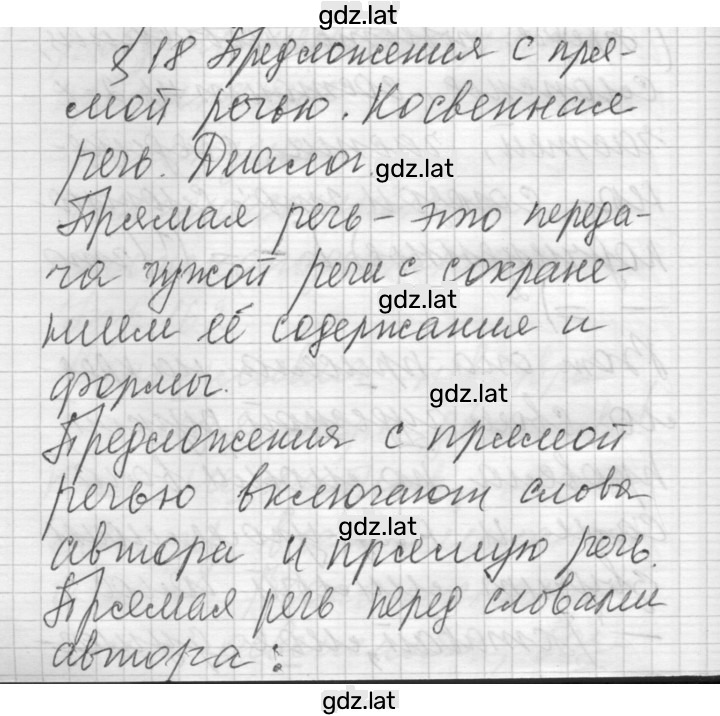 gdz.lat
§ 18 Предложения с пря-
мой речью. Косвенная
речь. Диалог.
gdz.lat
Прямая речь - это переда-
ча чужой речи с сохране-
gdz.lat
нием её содержания и
формы.
gdz.lat
Предложения с прямой
речью включают слова
gdz.lat
автора и прямую речь.
Прямая речь перед словами
автора:
gdz.lat